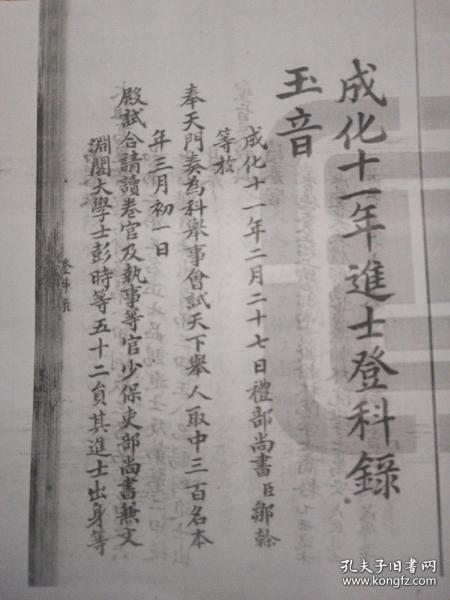 成化十一年進士登科錄
玉音
成化十一年二月二十七日禮部尚書臣鄒幹
等於
奉天門奏為科舉事會試天下舉人取中三百名本
年三月初一日
殿試合請讀卷官及執事等官少保吏部尚書兼文
淵閣大學士彭時等五十二員其進士出身等
登科錄
孔夫子旧书网
www.kongfz.com